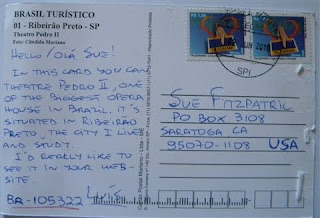 BRASIL TURÍSTICO
01 - Ribeirão Preto - SP
Theatro Pedro II
Foto: Cândido Mariano
HELLO/OLÁ SUE!
IN THIS CARD YOU CAN
THEATRE PEDRO II, ONE
OF THE BIGGEST OPERA
HOUSE IN BRAZIL. IT'S
SITUATED IN RIBEIRÃO
PRETO, THE CITY I LIVE
AND STUDY.
I'D REARLLY LIKE TO
SEE IT IN YOUR WEB-
SITE.
BR-105322
SPI
SUE FITZPATRIC
PO BOX 3108
SARATOGA, CA
95070-1108 USA